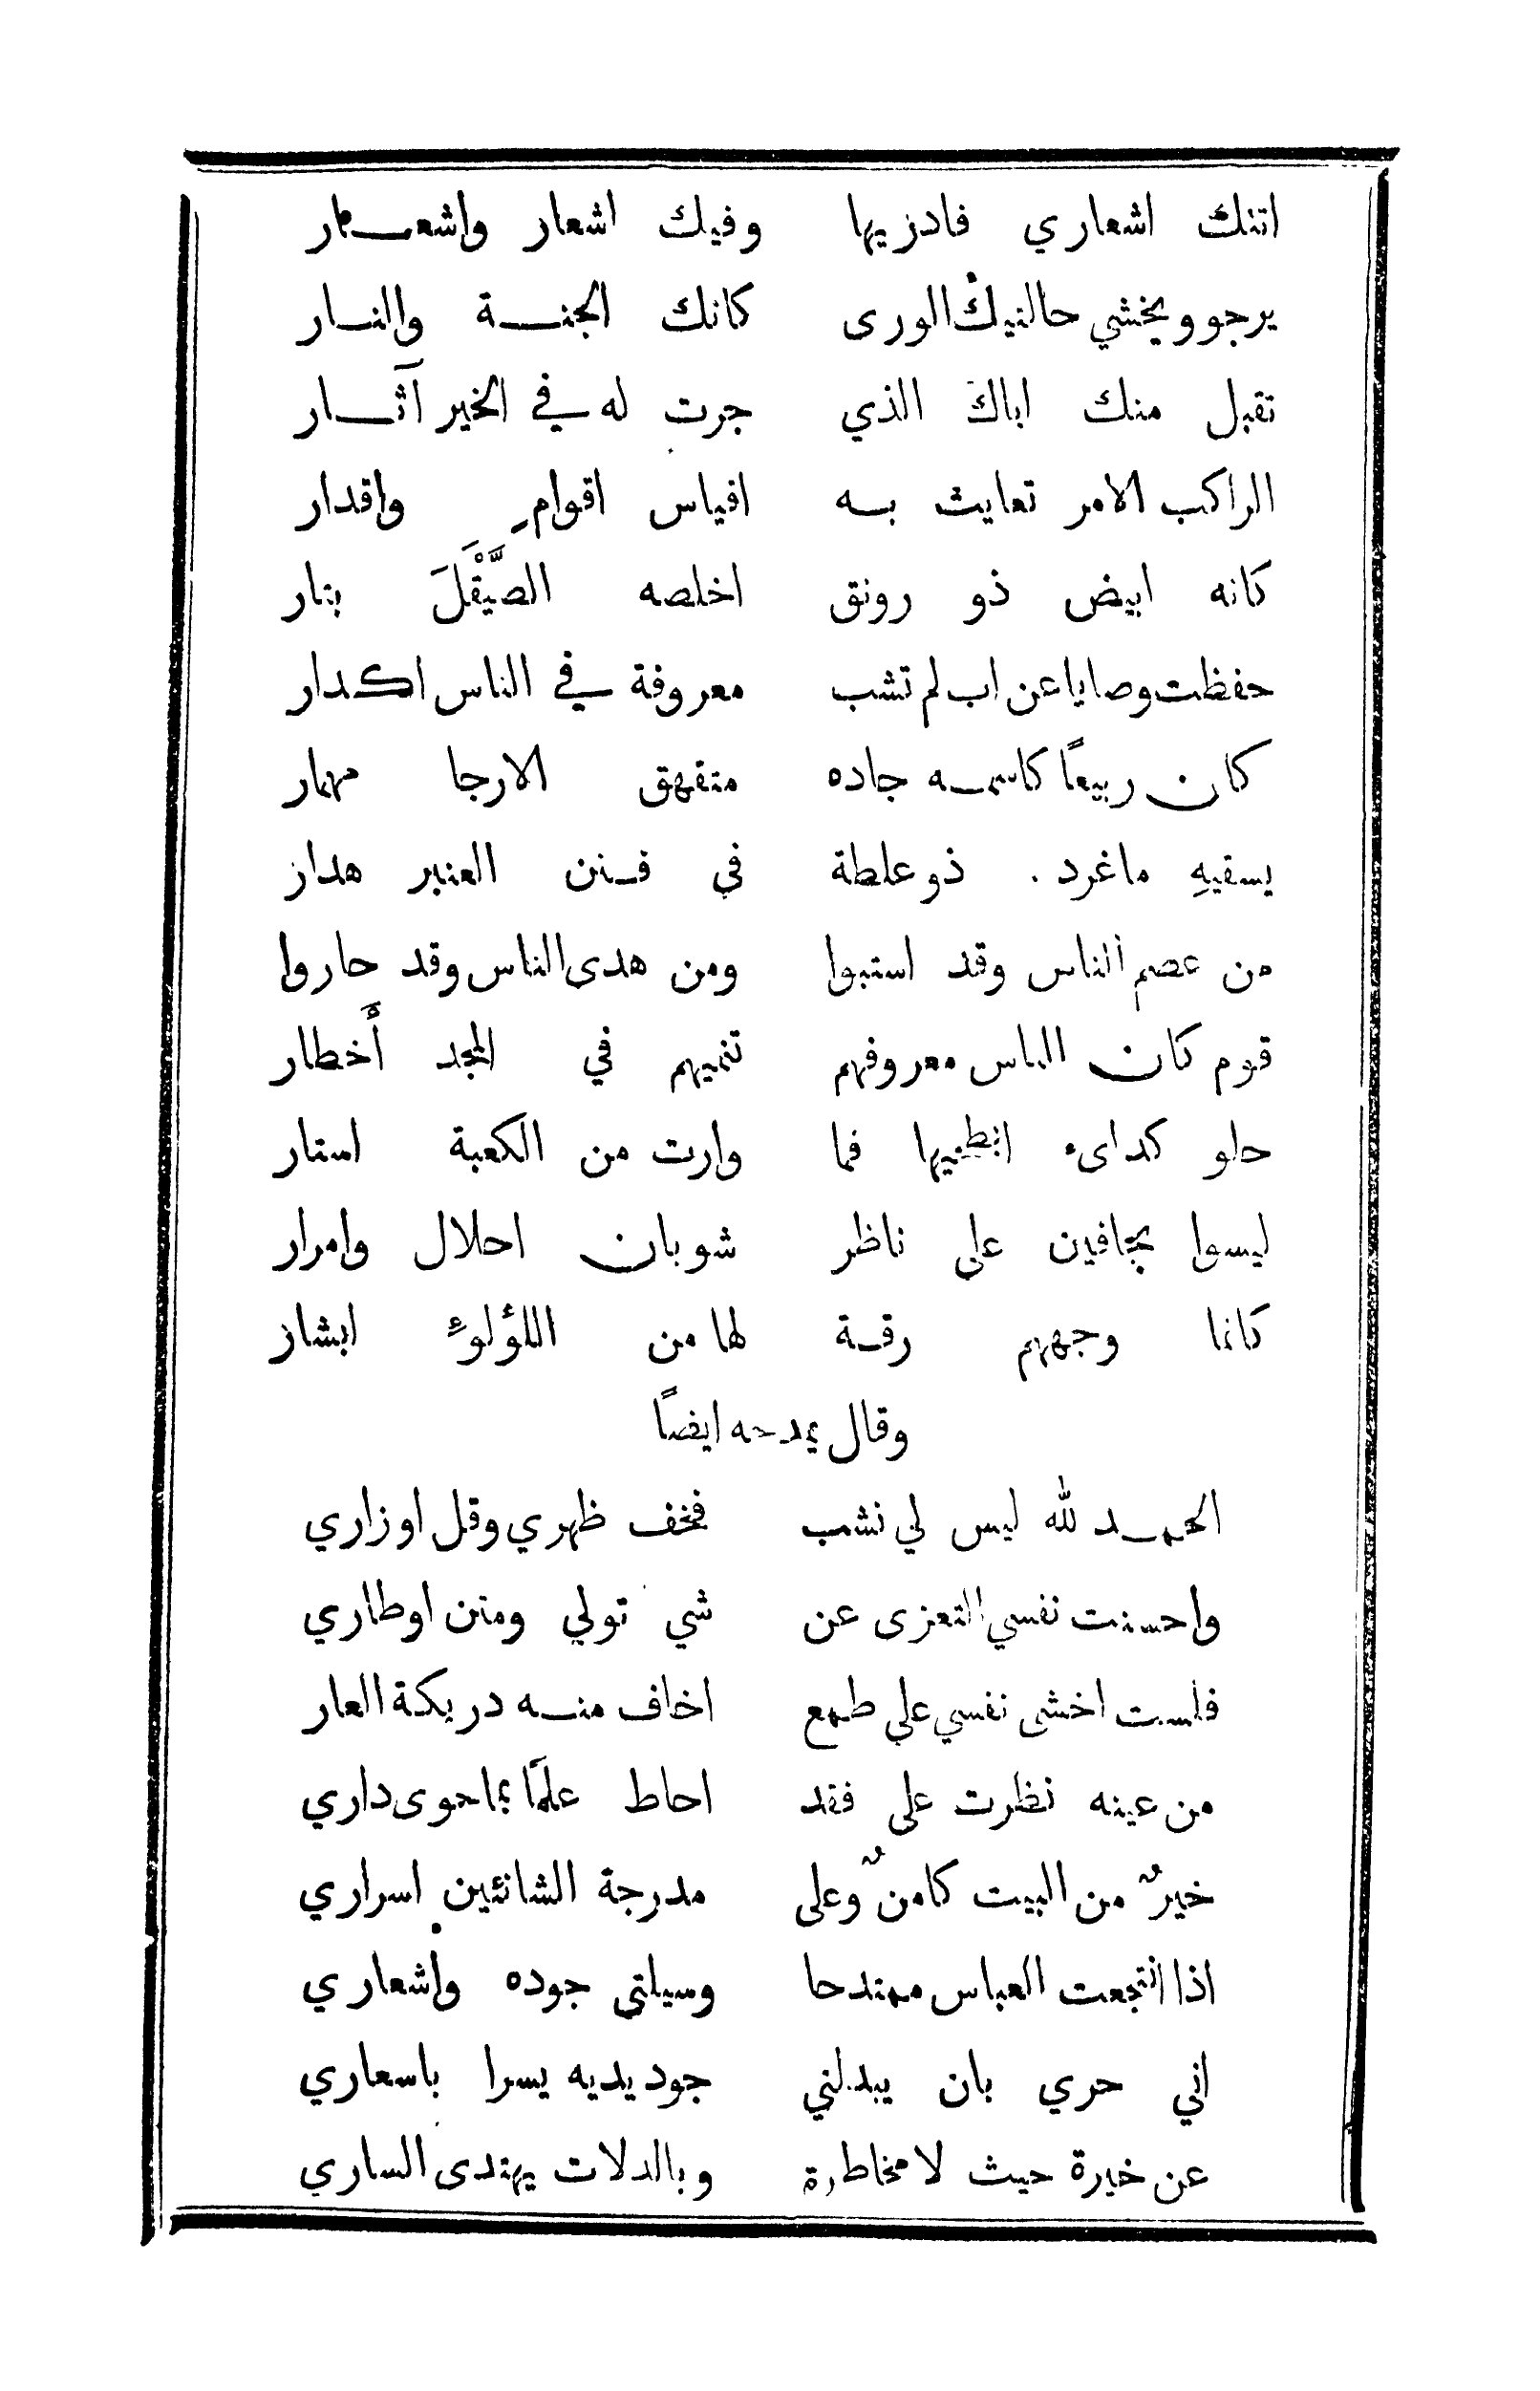 اتنك اشعاري فادزيها وفيك اشعار واشعـار
يرجو ويخشي حالنيك الورى كانك الجنـة والنـار
تقبل منك اباك الذي جرت له في الخير آثـار
الراكب الامر تعايث بـه افياس اقوامٍ واقدار
كانه ابيض ذو رونق اخلصه الصَّيْقَلَ بتار
حفظت وصايا عن اب لم تشب معروفة في الناس اكدار
كان ربيعاً كاسمـه جاده متفهق الارجا مهمار
يسقيهِ ما غرد . ذو علطة في فـنن العنبر هداز
من عصم الناس وقد استبوا ومن هدى الناس وقد حاروا
قوم كان الناس معروفهم تنميهم في المجد أخطار
حلو كداىء ابطنيها فما وارت من الكعبة استار
ليسوا بجافين على ناظر شوبان احلال وامرار
كانما وجههم رقـة لها من اللؤلوءِ ابشاز
وقال يمدحه ايضاً
الحمـد لله ليس لي نشب فخف ظهري وقل اوزاري
واحسنت نفسي التعزى عن شي تولي ومتن اوطاري
فلست اخشى نفسي علي طمع اخاف منـه دريكة العار
من عينه نظرت على فقد احاط علماً بما حوى داري
خيرٌ من البيت كامنٌ وعلى مدرجة الشانئين اسراري
اذا انتجعت العباس ممتدحا وسيلتى جوده واشعاري
اني حري بان يبدلني جود يديه يسرا باسعاري
عن خيرة حيث لا مخاطرة وبالدلات يهتدى الساري